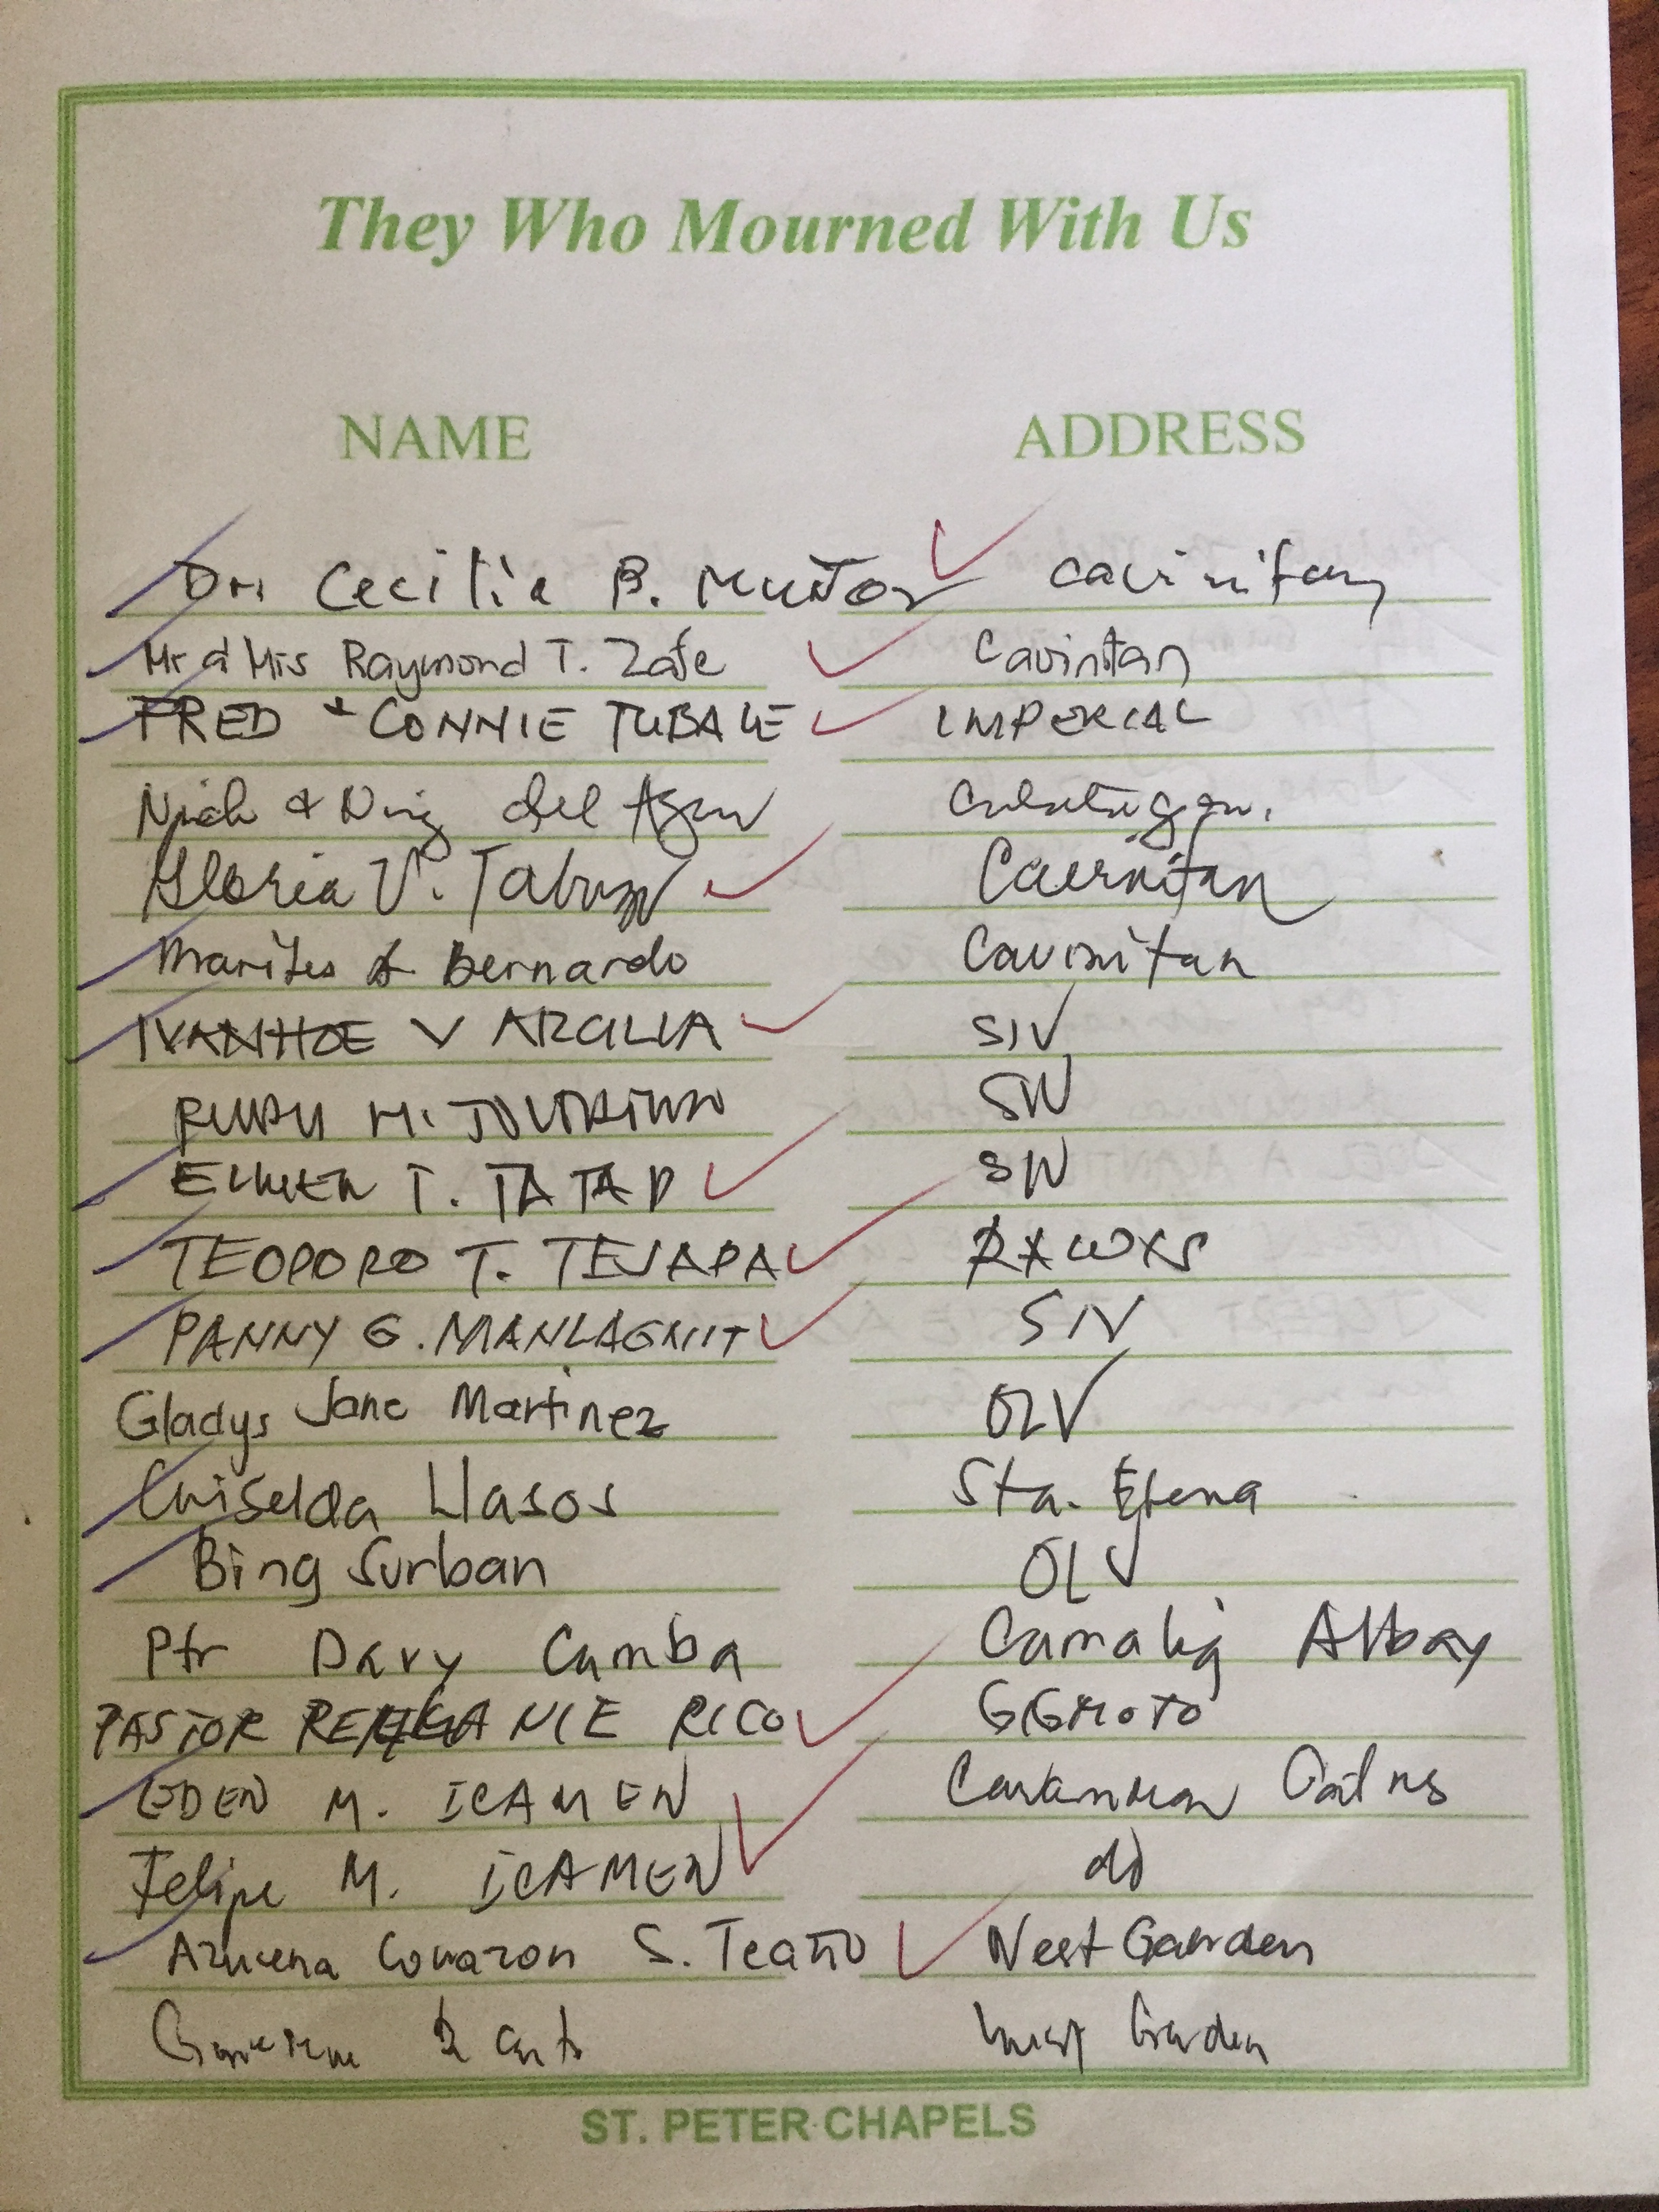 They Who Mourned With Us
NAME ADDRESS
Dr. Cecilia B. Muñoz Cavinitan
Mr & Mrs Raymond T. Zafe Cavinitan
FRED + CONNIE TUBALE IMPERIAL
& del
Gloria V. Cavinitan
Marites Bernardo Cavinitan
IVANHOE V ARCILLA SIV
RUDY M. SIV
T. TATAD SIV
TEODORO T. TEJADA
DANNY G. MANLAGNIT SIV
Gladys Jane Martinez OLV
Griselda Llasos Sta. Elena
Bing Surban OLV
Ptr Davy Camba Camalig Albay
PASTOR RICO GIGMOTO
EDEN M. ICAMEN
Felipe M. ICAMEN do
Azucena Corazon S. Teaño West Garden
West Garden
ST. PETER CHAPELS